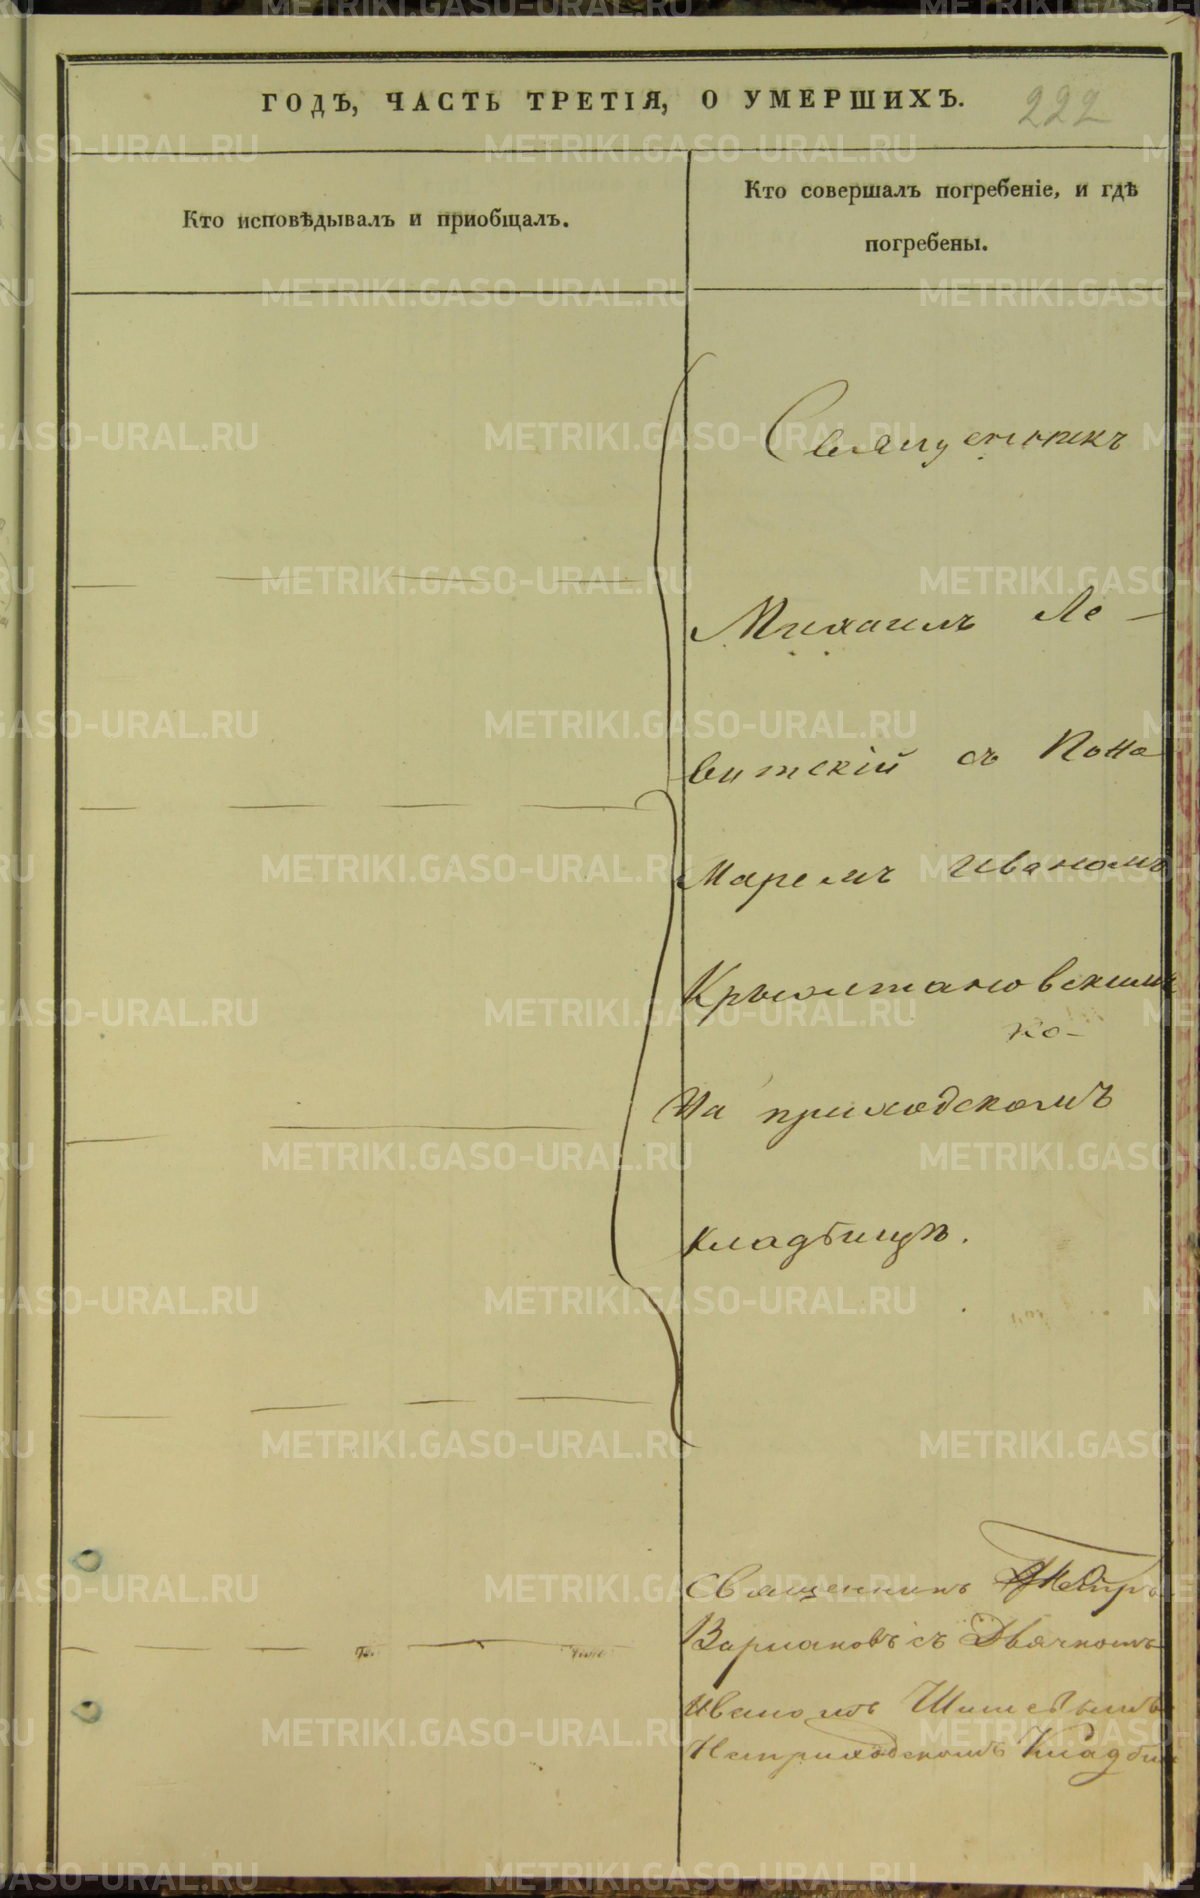 ГОДЪ, ЧАСТЬ ТРЕТІЯ, О УМЕРШИХЪ.
222
Кто исповѣдывалъ и пріобщалъ.
Кто совершалъ погребеніе, и гдѣ
погребены.
Священникъ
Михаилъ Ле-
витскій съ Поно
маремъ Иваномъ
ко-
На приходскомъ
кладбищѣ.
Священникъ Петръ
съ Дьячкомъ
Иваномъ
На приходскомъ Кладбищ
METRIKI.GASO-URAL.RU